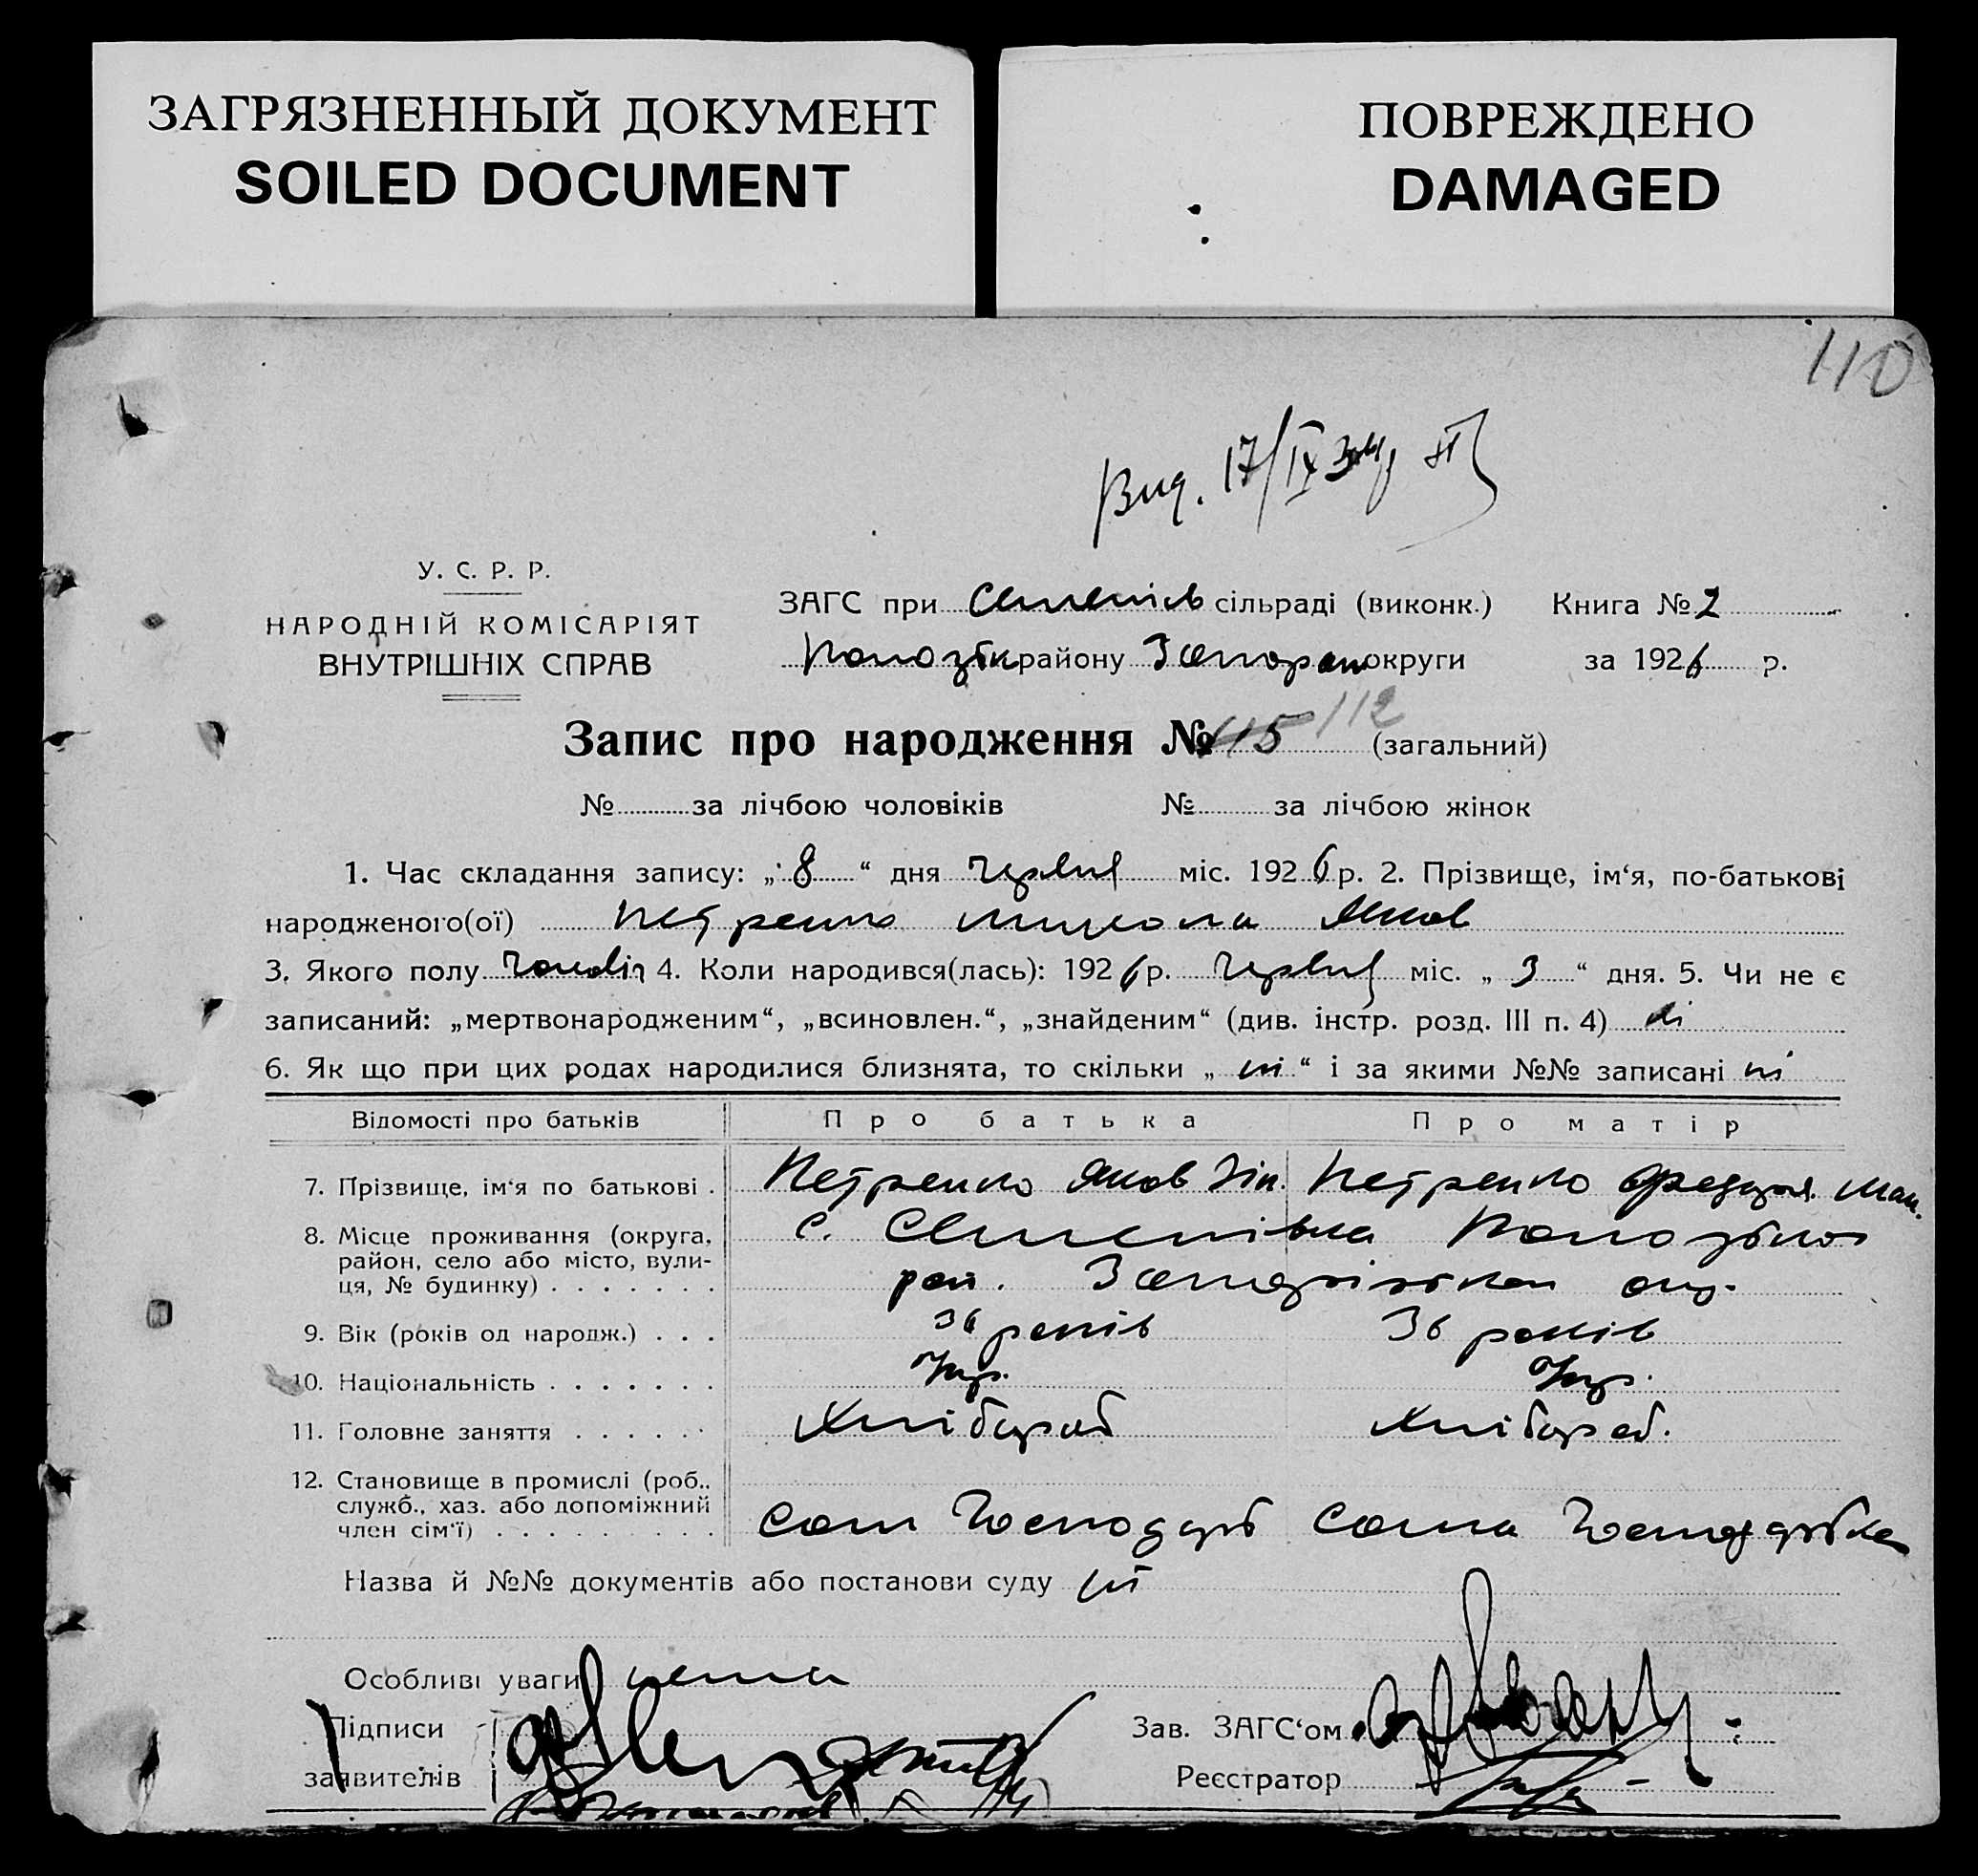 ЗАГРЯЗНЕННЫЙ ДОКУМЕНТ
SOILED DOCUMENT
ПОВРЕЖДЕНО
DAMAGED
110
Вид. 17/IX
У. С. Р. Р.
НАРОДНІЙ КОМІСАРІЯТ
ВНУТРІШНІХ СПРАВ
ЗАГС при Семенів сільраді (виконк.) Книга № 2
Пологівськ району Запоріж округи за 1926 р.
Запис про народження № 115 112 (загальний)
№ за лічбою чоловіків № за лічбою жінок
1. Час складання запису: „ 8 “ дня червня міс. 1926 р. 2. Прізвище, ім‘я, по-батькові
народженого(ої) Петренко Микола Яков
3. Якого полу чоловіч 4. Коли народився(лась): 1926 р. червня міс. „ 3 “ дня. 5. Чи не є
записаний: „мертвонародженим“, „всиновлен.“, „знайденим“ (див. інстр. розд. III п. 4) ні
6. Як що при цих родах народилися близнята, то скільки „ ні “ і за якими №№ записані ні
Відомості про батьків Про батька Про матір
7. Прізвище, ім‘я по батькові . Петренко Яков Петренко
8. Місце проживання (округа, район, село або місто, вулиця, № будинку) . . . . . . . с. Семенівка
рай. Запорізької окр.
9. Вік (років од народж.) . . . 36 років 36 років
10. Національність . . . . . . . Укр. Укр.
11. Головне заняття . . . . . . Хлібороб Хлібороб.
12. Становище в промислі (роб.. служб., хаз. або допоміжний член сім‘ї) . . . . . . . . . Сам Господарь Сама Господарька
Назва й №№ документів або постанови суду ні
Особливі уваги нема
Підписи
заявителів
Зав. ЗАГС‘ом
Реєстратор